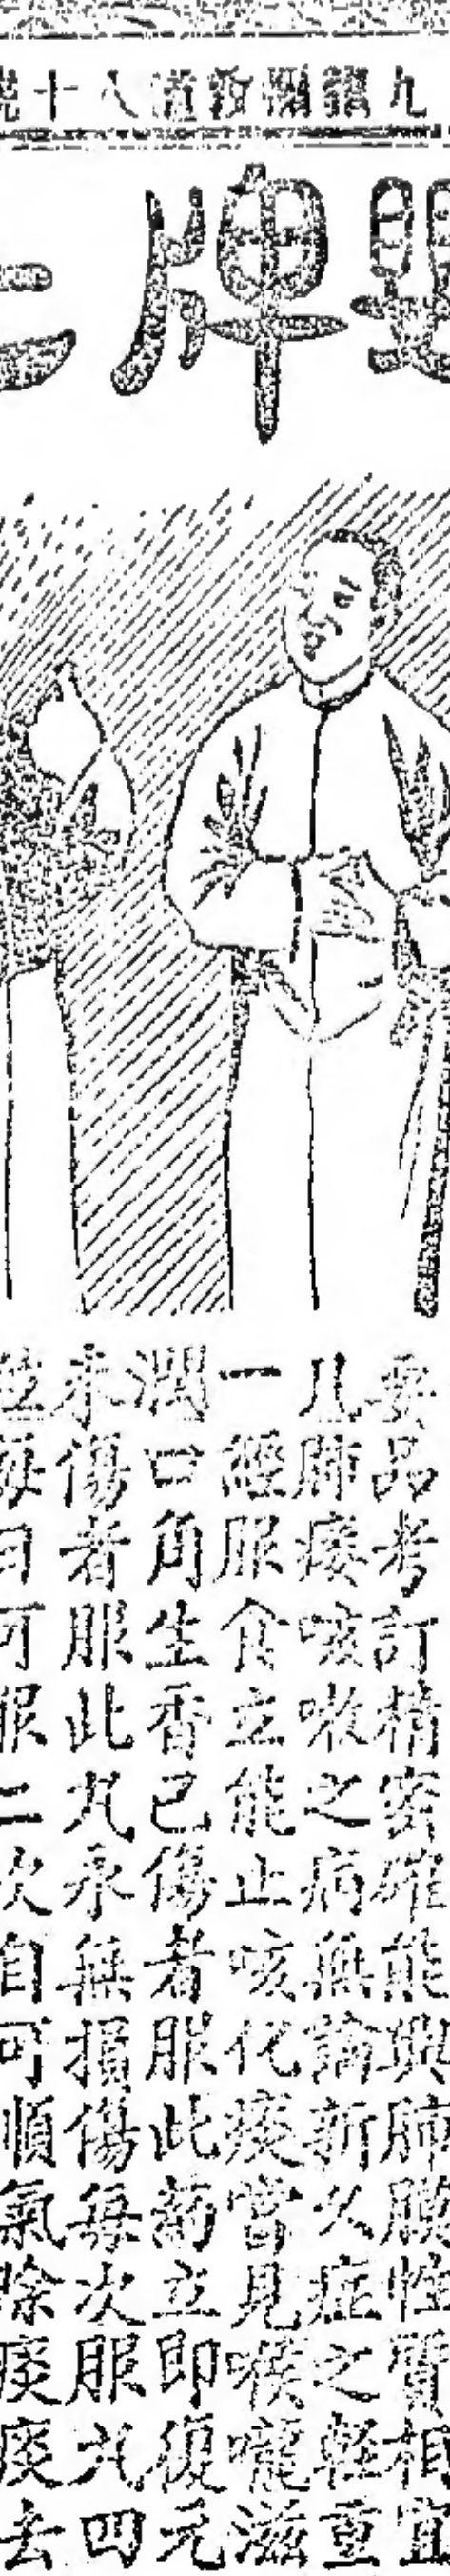 九龍彌敦道八十號
嬰牌止
要品考訂精密確能與肺膜性質相宜
凡肺痿咳嗽之病無論新久症之軽重
一經服食立能止咳化痰當見喉嚨滋
潤口角生香已傷者服此葯立即復元
未傷者服此丸永無損傷每次服丸四
粒每日可服二次自可順氣除痰痰去